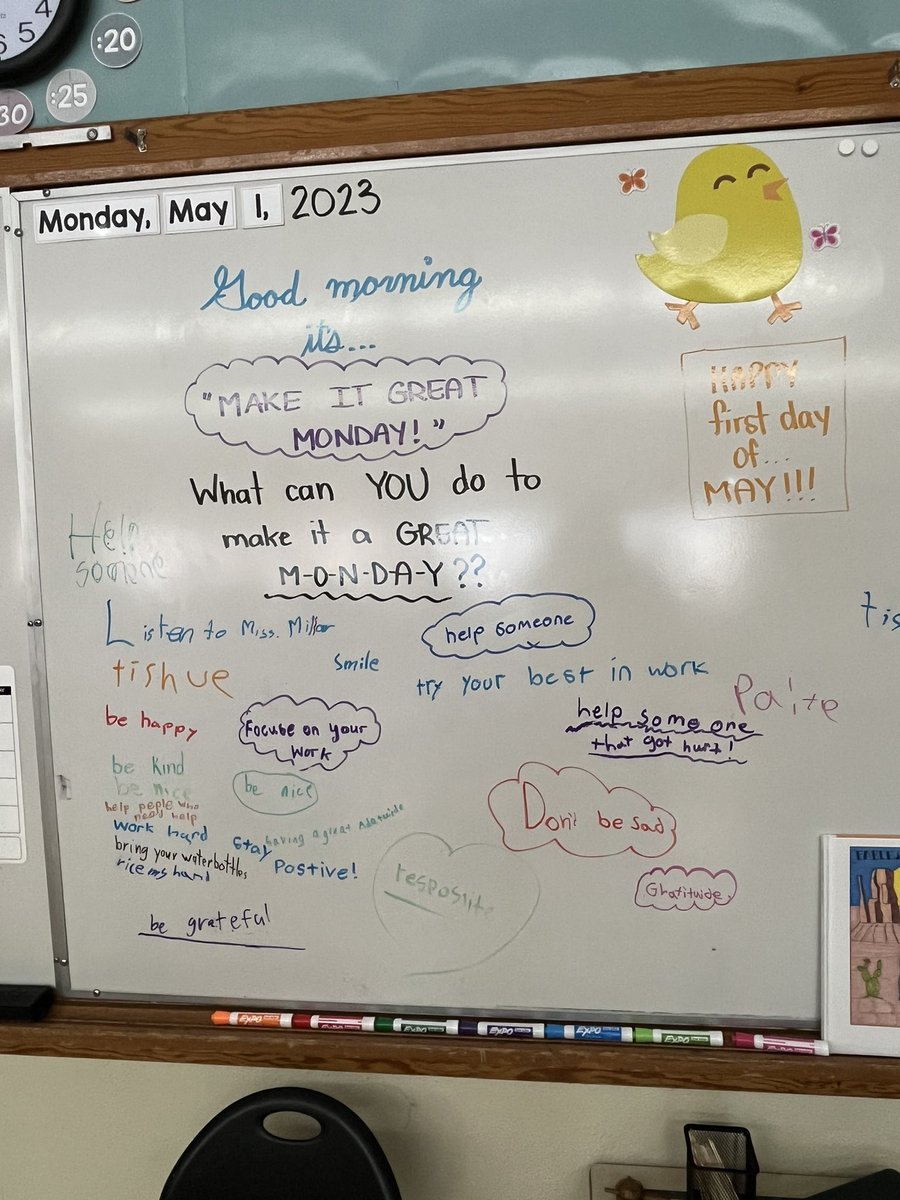 4
5
6
:20
:25
30
Monday, May 1, 2023
Good morning
it's...
"MAKE IT GREAT
MONDAY!"
HAPPY
first day
of...
MAY!!!
What can YOU do to
make it a GREAT
M-O-N-D-A-Y??
Help
somone
Listen to Miss. Miller
help someone
tis
tishue
Smile
try your best in work
Pa'ite
be happy
Focuse on your
Work
help someone
that got hurt!
be kind
be nice
be nice
help peple who
need help
work hard
Stay
Postive!
having a great Adatuide
bring your waterbottles
rice my hand
Don't be sad
resposite
Gratituide.
be grateful
EXPO
EXPO
EXPO
EXPO
EXPO
EXPO
EXPO